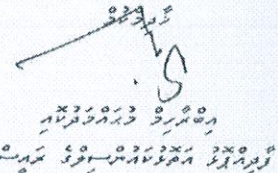 ޚާދިމްކުމް
އިބްރާހިމް މުޙައްމަދުކޮއި
ފާދިއްޕޮޅު އަތޮޅުކައުންސިލްގެ ރައީސް